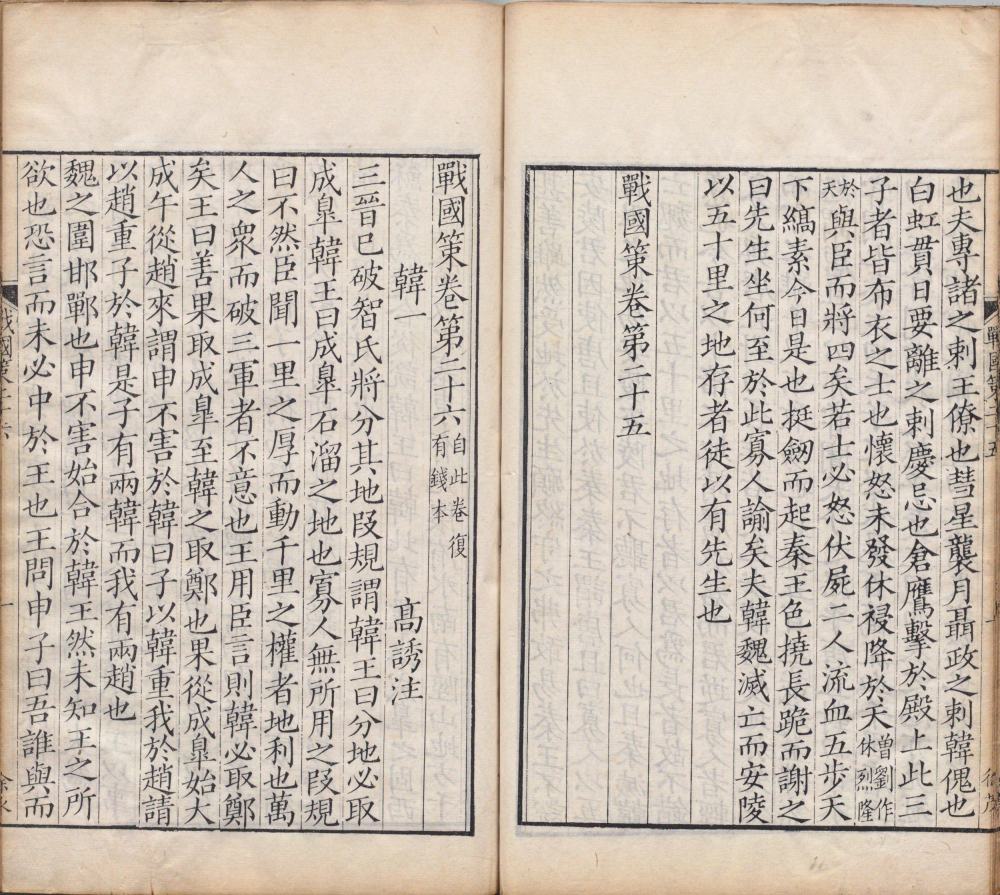 也夫專諸之刺王僚也彗星襲月聶政之刺韓傀也
白虹貫日要離之刺慶忌也倉鷹擊於殿上此三
子者皆布衣之士也懷怒未發休祲降於天曾劉作休烈隆
於天與臣而將四矣若士必怒伏屍二人流血五步天
下縞素今日是也挺劒而起秦王色撓長跪而謝之
曰先生坐何至於此寡人諭矣夫韓魏滅亡而安陵
以五十里之地存者徒以有先生也
戰國策卷第二十五
戰國策卷第二十六自此卷復有錢本
韓一 高誘注
三晉已破智氏將分其地段規謂韓王曰分地必取
成臯韓王曰成臯石溜之地也寡人無所用之段規
曰不然臣聞一里之厚而動千里之權者地利也萬
人之衆而破三軍者不意也王用臣言則韓必取鄭
矣王曰善果取成臯至韓之取鄭也果從成臯始大
成午從趙來謂申不害於韓曰子以韓重我於趙請
以趙重子於韓是子有兩韓而我有兩趙也
魏之圍邯鄲也申不害始合於韓王然未知王之所
欲也恐言而未必中於王也王問申子曰吾誰與而